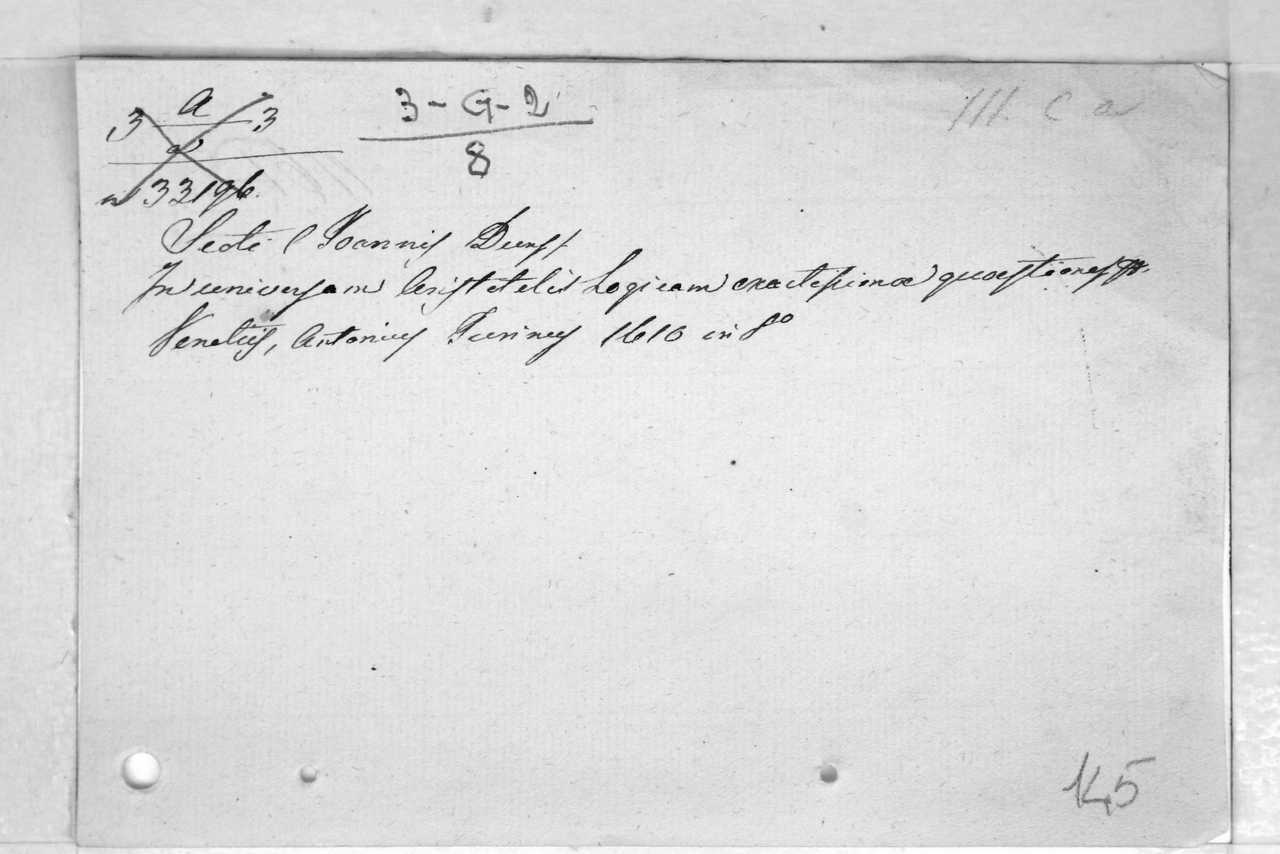 3 a 3
n 33196
3-G-2
8
III C a
Scoti (Joannis Duns)
In universam Aristotelis Logicam exactissimae quaestiones
Venetiis, Antonius Turinus 1610 in 8º
145